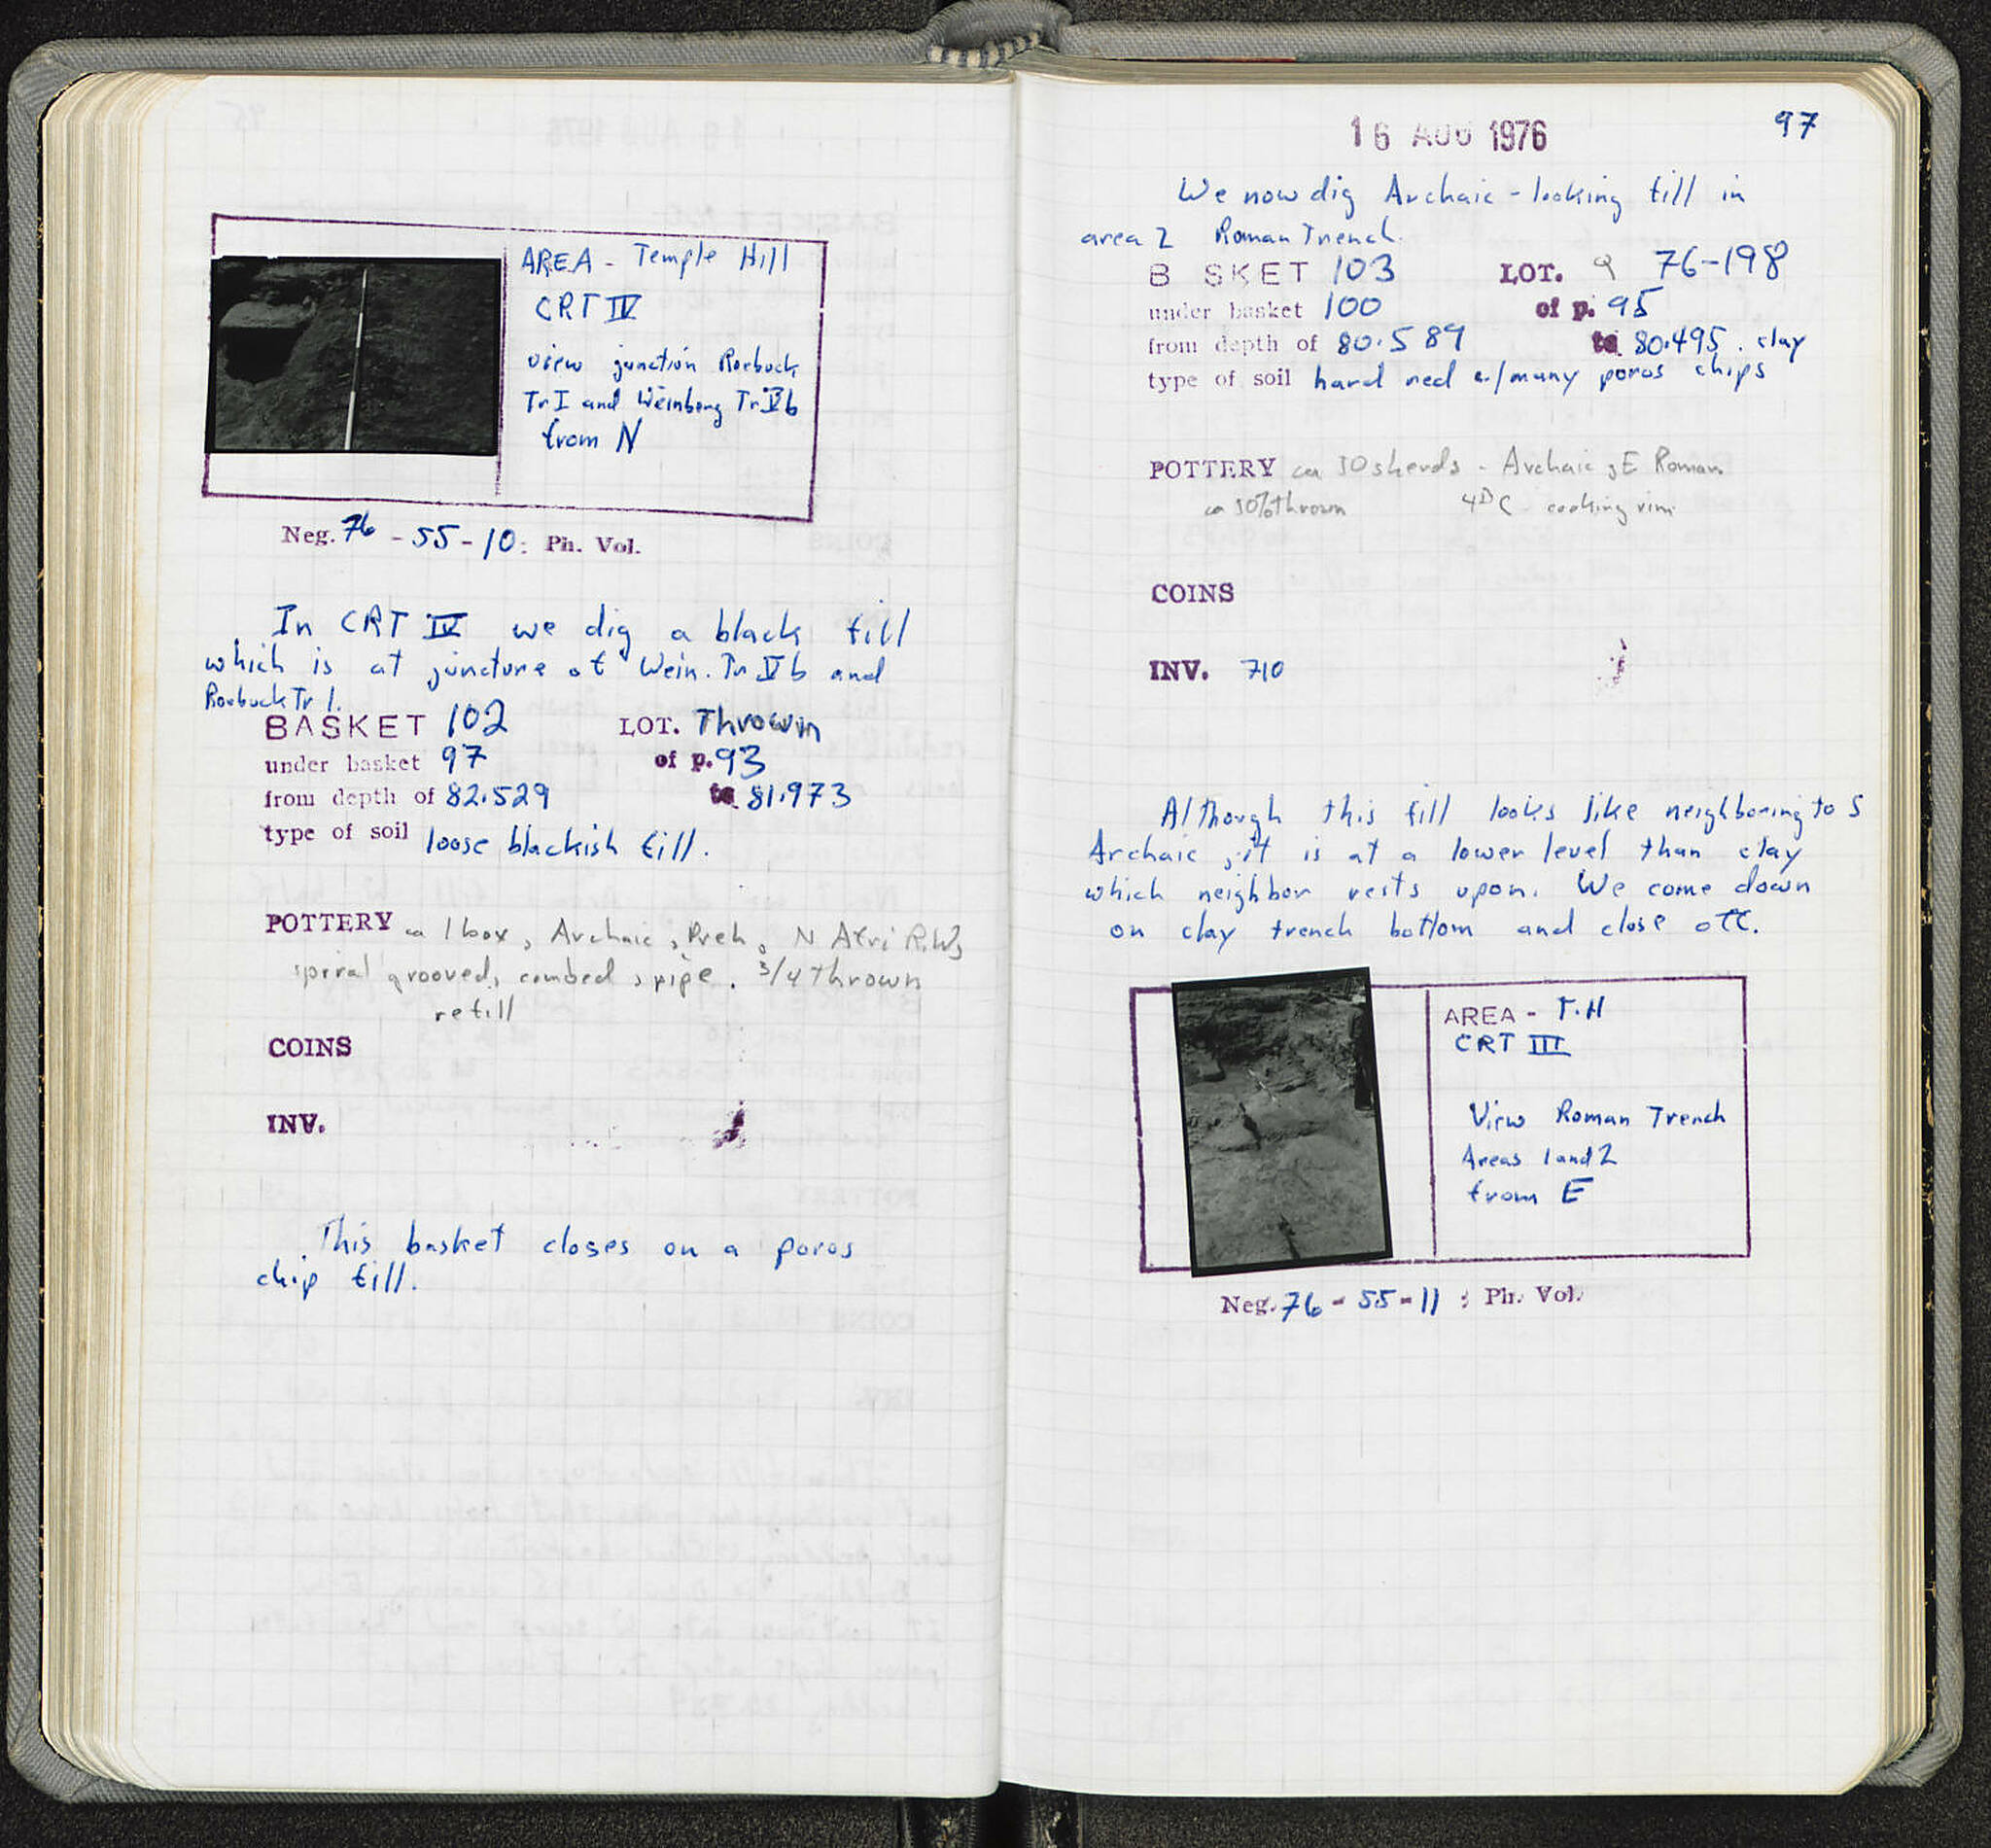 AREA - Temple Hill
CRT IV
view junction Roebuck
Tr I and Weinberg Tr Vb
from N
Neg. 76 - 55 - 10 : Ph. Vol.
In CRT IV we dig a black fill
which is at juncture of Wein. Tr Vb and
Roebuck Tr I.
BASKET 102 LOT. Thrown
under basket 97 of p. 93
from depth of 82.529 to 81.973
type of soil loose blackish fill.
POTTERY ca 1 box, Archaic, Preh, N Afri R.W,
spiral grooved, combed, pipe. 3/4 thrown
refill
COINS
INV.
This basket closes on a poros
chip fill.
16 AUG 1976 97
We now dig Archaic-looking fill in
area 2 Roman Trench.
B SKET 103 LOT. 76-198
under basket 100 of p. 95
from depth of 80.589 to 80.495. clay
type of soil hard red w/many poros chips
POTTERY ca 50 sherds - Archaic, E Roman
ca 50% thrown 4th C cooking rim
COINS
INV. 710
Although this fill looks like neighboring to S
Archaic, it is at a lower level than clay
which neighbor rests upon. We come down
on clay trench bottom and close off.
AREA - T.H
CRT III
View Roman Trench
Areas 1 and 2
from E
Neg. 76 - 55 - 11 : Ph. Vol.